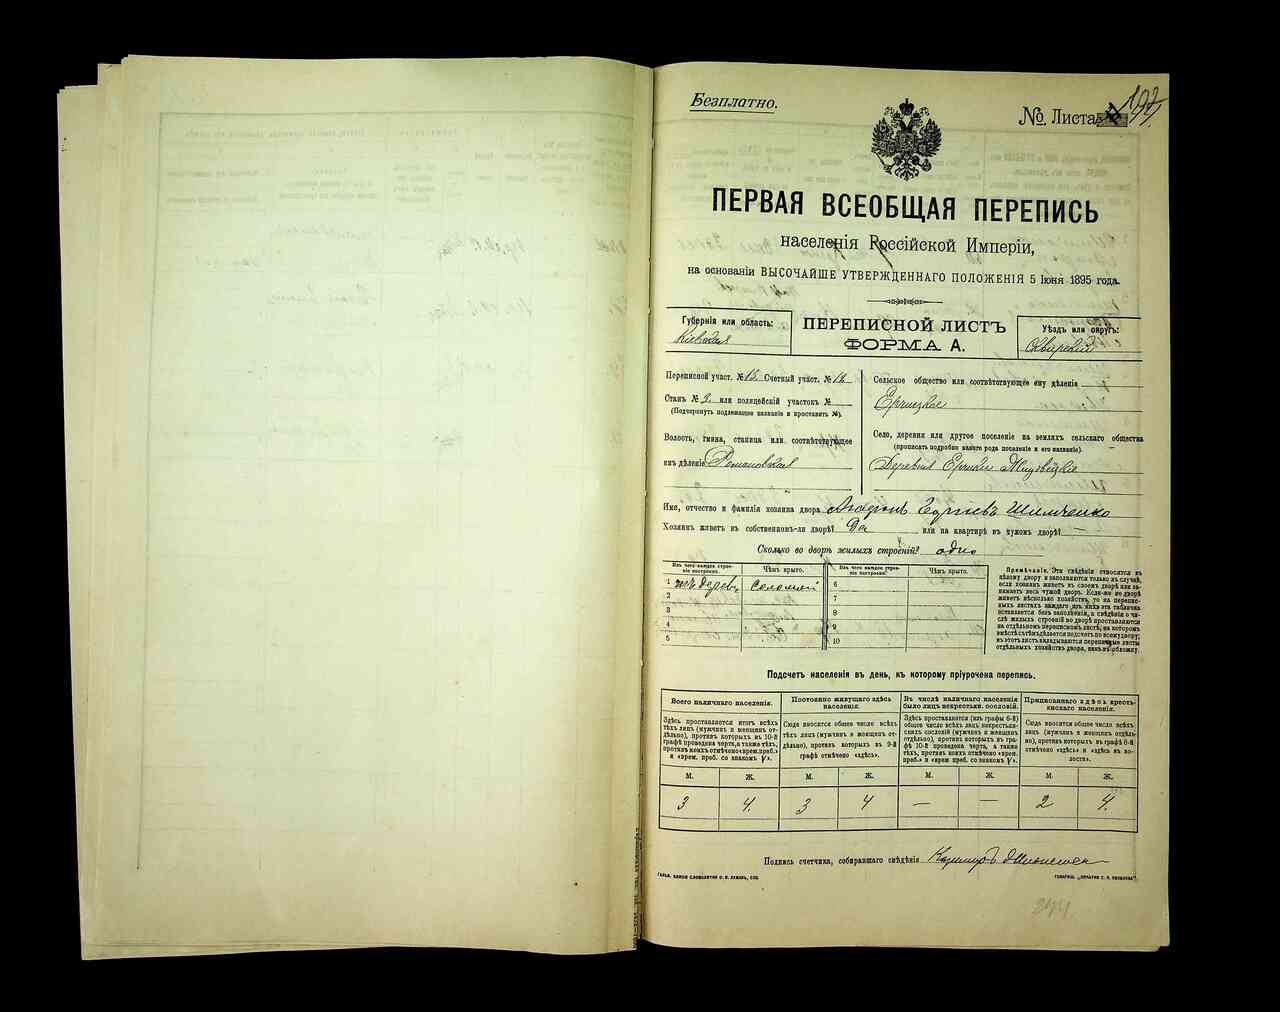 Безплатно.
№ Листа 192
ПЕРВАЯ ВСЕОБЩАЯ ПЕРЕПИСЬ
населенія Россійской Имперіи,
на основаніи ВЫСОЧАЙШЕ УТВЕРЖДЕННАГО ПОЛОЖЕНІЯ 5 Іюня 1895 года.
Губернія или область:
Кіевская
ПЕРЕПИСНОЙ ЛИСТЪ
ФОРМА А.
Уѣздъ или округъ:
Сквирскій
Переписной участ. № 12. Счетный участ. № 12.
Станъ № 3. или полицейскій участокъ №
(Подчеркнуть подлежащее названіе и проставить №).
Волость, гмина, станица или соотвѣтствующее
имъ дѣленіе Романовская
Сельское общество или соотвѣтствующее ему дѣленіе
Ерчицкое
Село, деревня или другое поселеніе на земляхъ сельскаго общества
(прописать подробно какого рода поселеніе и его названіе).
Деревня Ерчики
Имя, отчество и фамилія хозяина двора Шимченко
Хозяинъ живетъ въ собственномъ-ли дворѣ? Да или на квартирѣ въ чужомъ дворѣ? —
Сколько во дворѣ жилыхъ строеній? одно
Изъ чего каждое строеніе построено.
Чѣмъ крыто.
Изъ чего каждое строеніе построено.
Чѣмъ крыто.
1 изъ дерева соломой
2
3
4
5
6
7
8
9
10
Примѣчаніе. Эти свѣдѣнія относятся къ
цѣлому двору и заполняются только въ случаѣ,
если хозяинъ живетъ въ своемъ дворѣ или занимаетъ
весь чужой дворъ. Если-же во дворѣ
живетъ нѣсколько хозяйствъ, то на переписныхъ
листахъ каждаго изъ нихъ эта табличка
оставляется безъ заполненія, а свѣдѣнія о числѣ
жилыхъ строеній во дворѣ проставляются
на отдѣльномъ переписномъ листѣ, на которомъ
вмѣстѣ съ тѣмъ дѣлается подсчетъ по всему двору;
въ этотъ листъ вкладываются переписные листы
отдѣльныхъ хозяйствъ двора, какъ въ обложку.
Подсчетъ населенія въ день, къ которому пріурочена перепись.
Всего наличнаго населенія.
Здѣсь проставляется итогъ всѣхъ
тѣхъ лицъ (мужчинъ и женщинъ отдѣльно),
противъ которыхъ въ 10-й
графѣ проведена черта, а также тѣхъ,
противъ коихъ отмѣчено «врем. преб.»
и «врем. преб. со знакомъ V».
Постоянно живущаго здѣсь
населенія.
Сюда вносится общее число всѣхъ
тѣхъ лицъ (мужчинъ и женщинъ отдѣльно),
противъ которыхъ въ 9-й
графѣ отмѣчено «здѣсь».
Въ числѣ наличнаго населенія
было лицъ некрестьян. сословій.
Здѣсь проставляется (изъ графы 6-й)
общее число всѣхъ лицъ некрестьянскихъ
сословій (мужчинъ и женщинъ
отдѣльно), противъ которыхъ въ графѣ
10-й проведена черта, а также
тѣхъ, противъ коихъ отмѣчено «врем.
преб.» и «врем. преб. со знакомъ V».
Приписаннаго здѣсь крестьянскаго
населенія.
Сюда вносится общее число всѣхъ
лицъ (мужчинъ и женщинъ отдѣльно),
противъ которыхъ въ графѣ 8-й
отмѣчено «здѣсь» и «здѣсь въ волости».
М. Ж. М. Ж. М. Ж. М. Ж.
3 4. 3 4 — — 2 4.
Подпись счетчика, собиравшаго свѣдѣнія
244